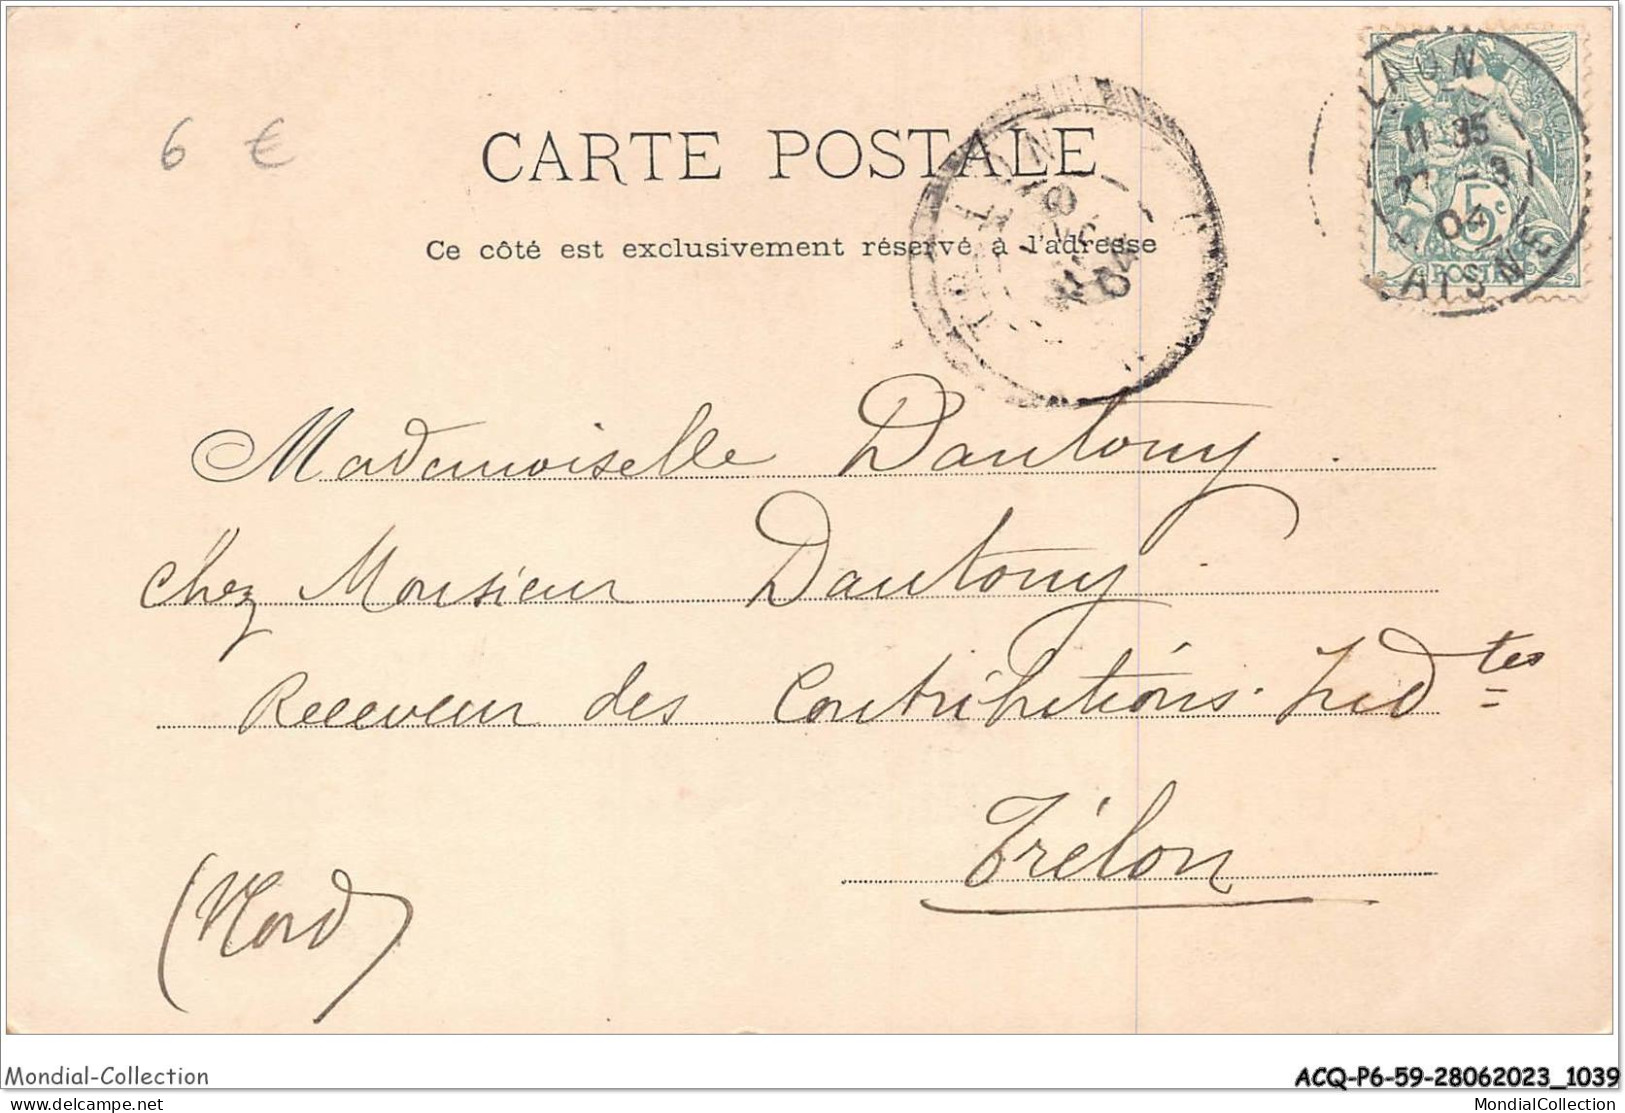 6 €
CARTE POSTALE
Ce côté est exclusivement réservé à l'adresse
LAON
11 35
27 - 3
04
AISNE
5c
POSTES
TRÉLON
04
Mademoiselle Dautony
chez Monsieur Dautony
Receveur des Contributions Indtes
Trélon
(Nord)
Mondial-Collection
ACQ-P6-59-28062023_1039
delcampe.net
MondialCollection